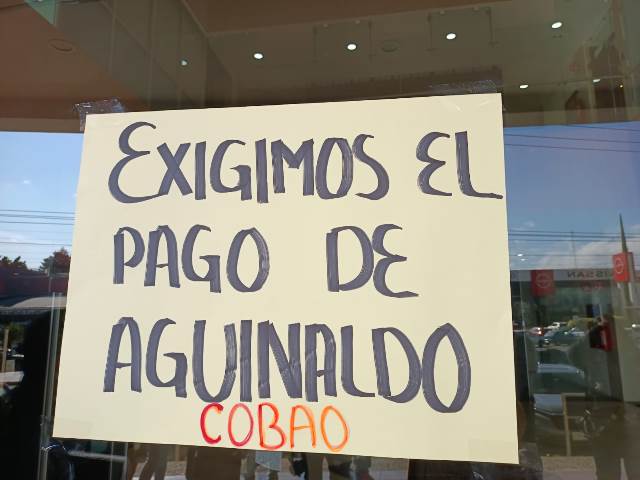 EXIGIMOS EL
PAGO DE
AGUINALDO
COBAO
NISSAN